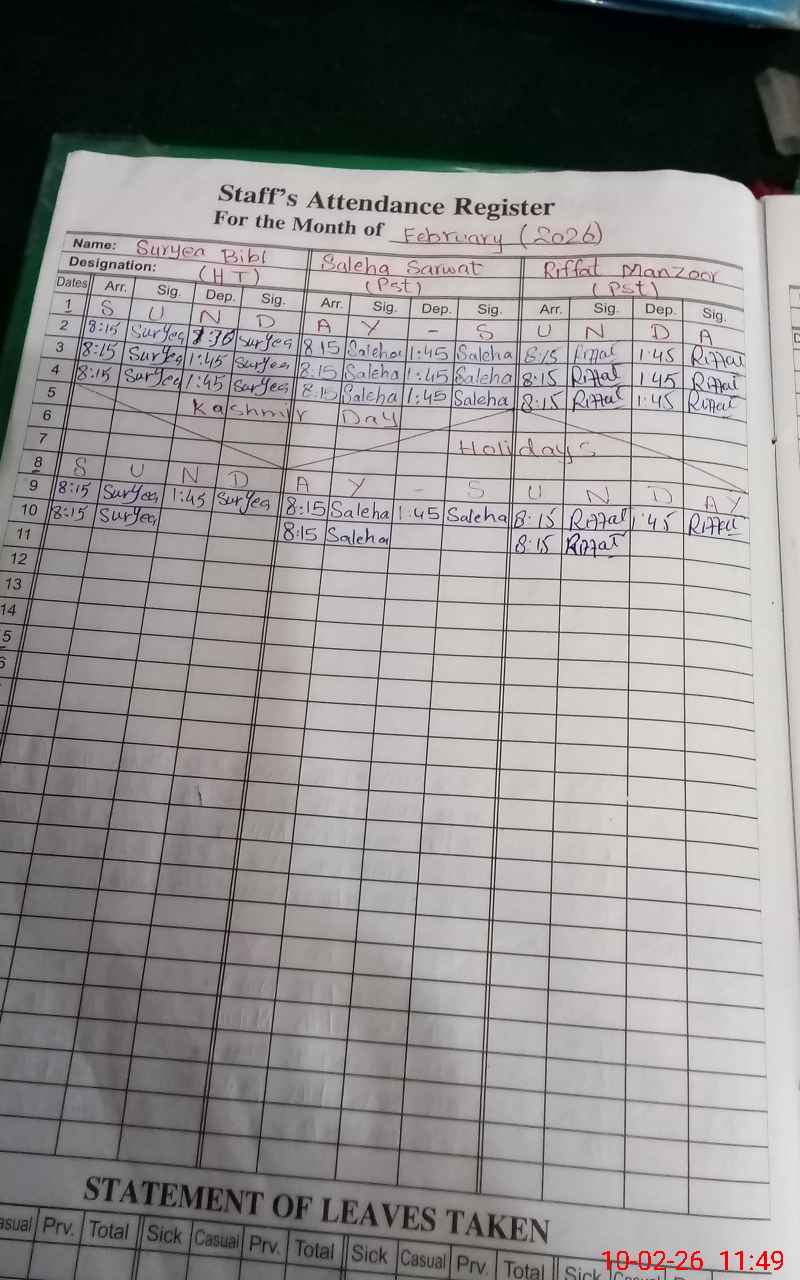 Staff's Attendance Register
For the Month of February (2026)
Name: Suryea Bibi Saleha Sarwat Riffat Manzoor
Designation: (HT) (Pst) (Pst)
Dates Arr. Sig. Dep. Sig. Arr. Sig. Dep. Sig. Arr. Sig. Dep. Sig.
1 S U N D A Y - S U N D A
2 8:15 Suryea 1:30 Suryea 8:15 Saleha 1:45 Saleha 8:15 Riffat 1:45 Riffat
3 8:15 Suryea 1:45 Suryea 8:15 Saleha 1:45 Saleha 8:15 Riffat 1:45 Riffat
4 8:15 Suryea 1:45 Suryea 8:15 Saleha 1:45 Saleha 8:15 Riffat 1:45 Riffat
5 Kashmir Day
6
7 Holidays
8 S U N D A Y - S U N D A Y
9 8:15 Suryea 1:45 Suryea 8:15 Saleha 1:45 Saleha 8:15 Riffat 1:45 Riffat
10 8:15 Suryea 8:15 Saleha 8:15 Riffat
11
12
13
14
5
6
STATEMENT OF LEAVES TAKEN
asual Prv. Total Sick Casual Prv. Total Sick Casual Prv. Total Sick
10-02-26 11:49